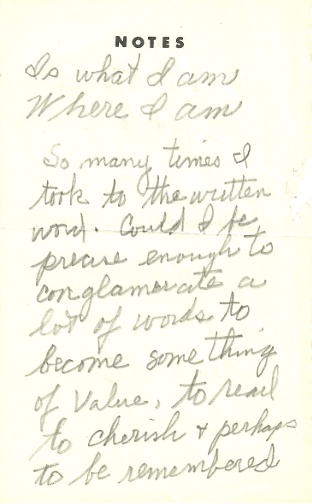 NOTES
Is what I am
Where I am
So many times I
took to the written
word. Could I be
precise enough to
conglamerate a
lot of words to
become some thing
of value, to read
to cherish + perhaps
to be remembered